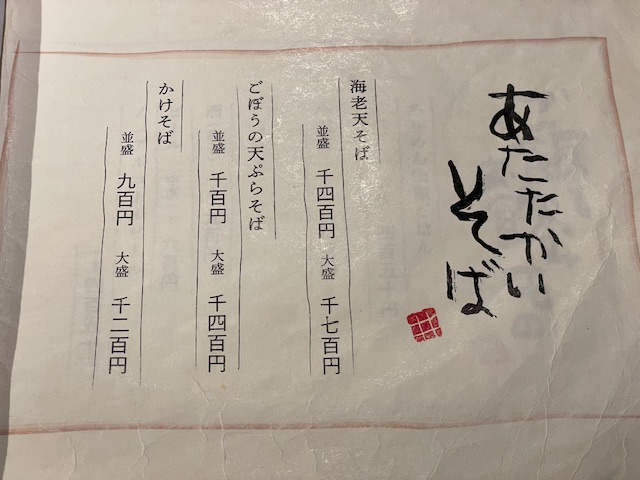 あたたかい
そば
海老天そば
並盛 千四百円 大盛 千七百円
ごぼうの天ぷらそば
並盛 千百円 大盛 千四百円
かけそば
並盛 九百円 大盛 千二百円